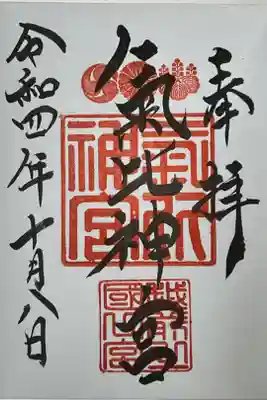 奉拝
氣比神宮
氣比神宮
越前國一之宮
令和四年十月八日